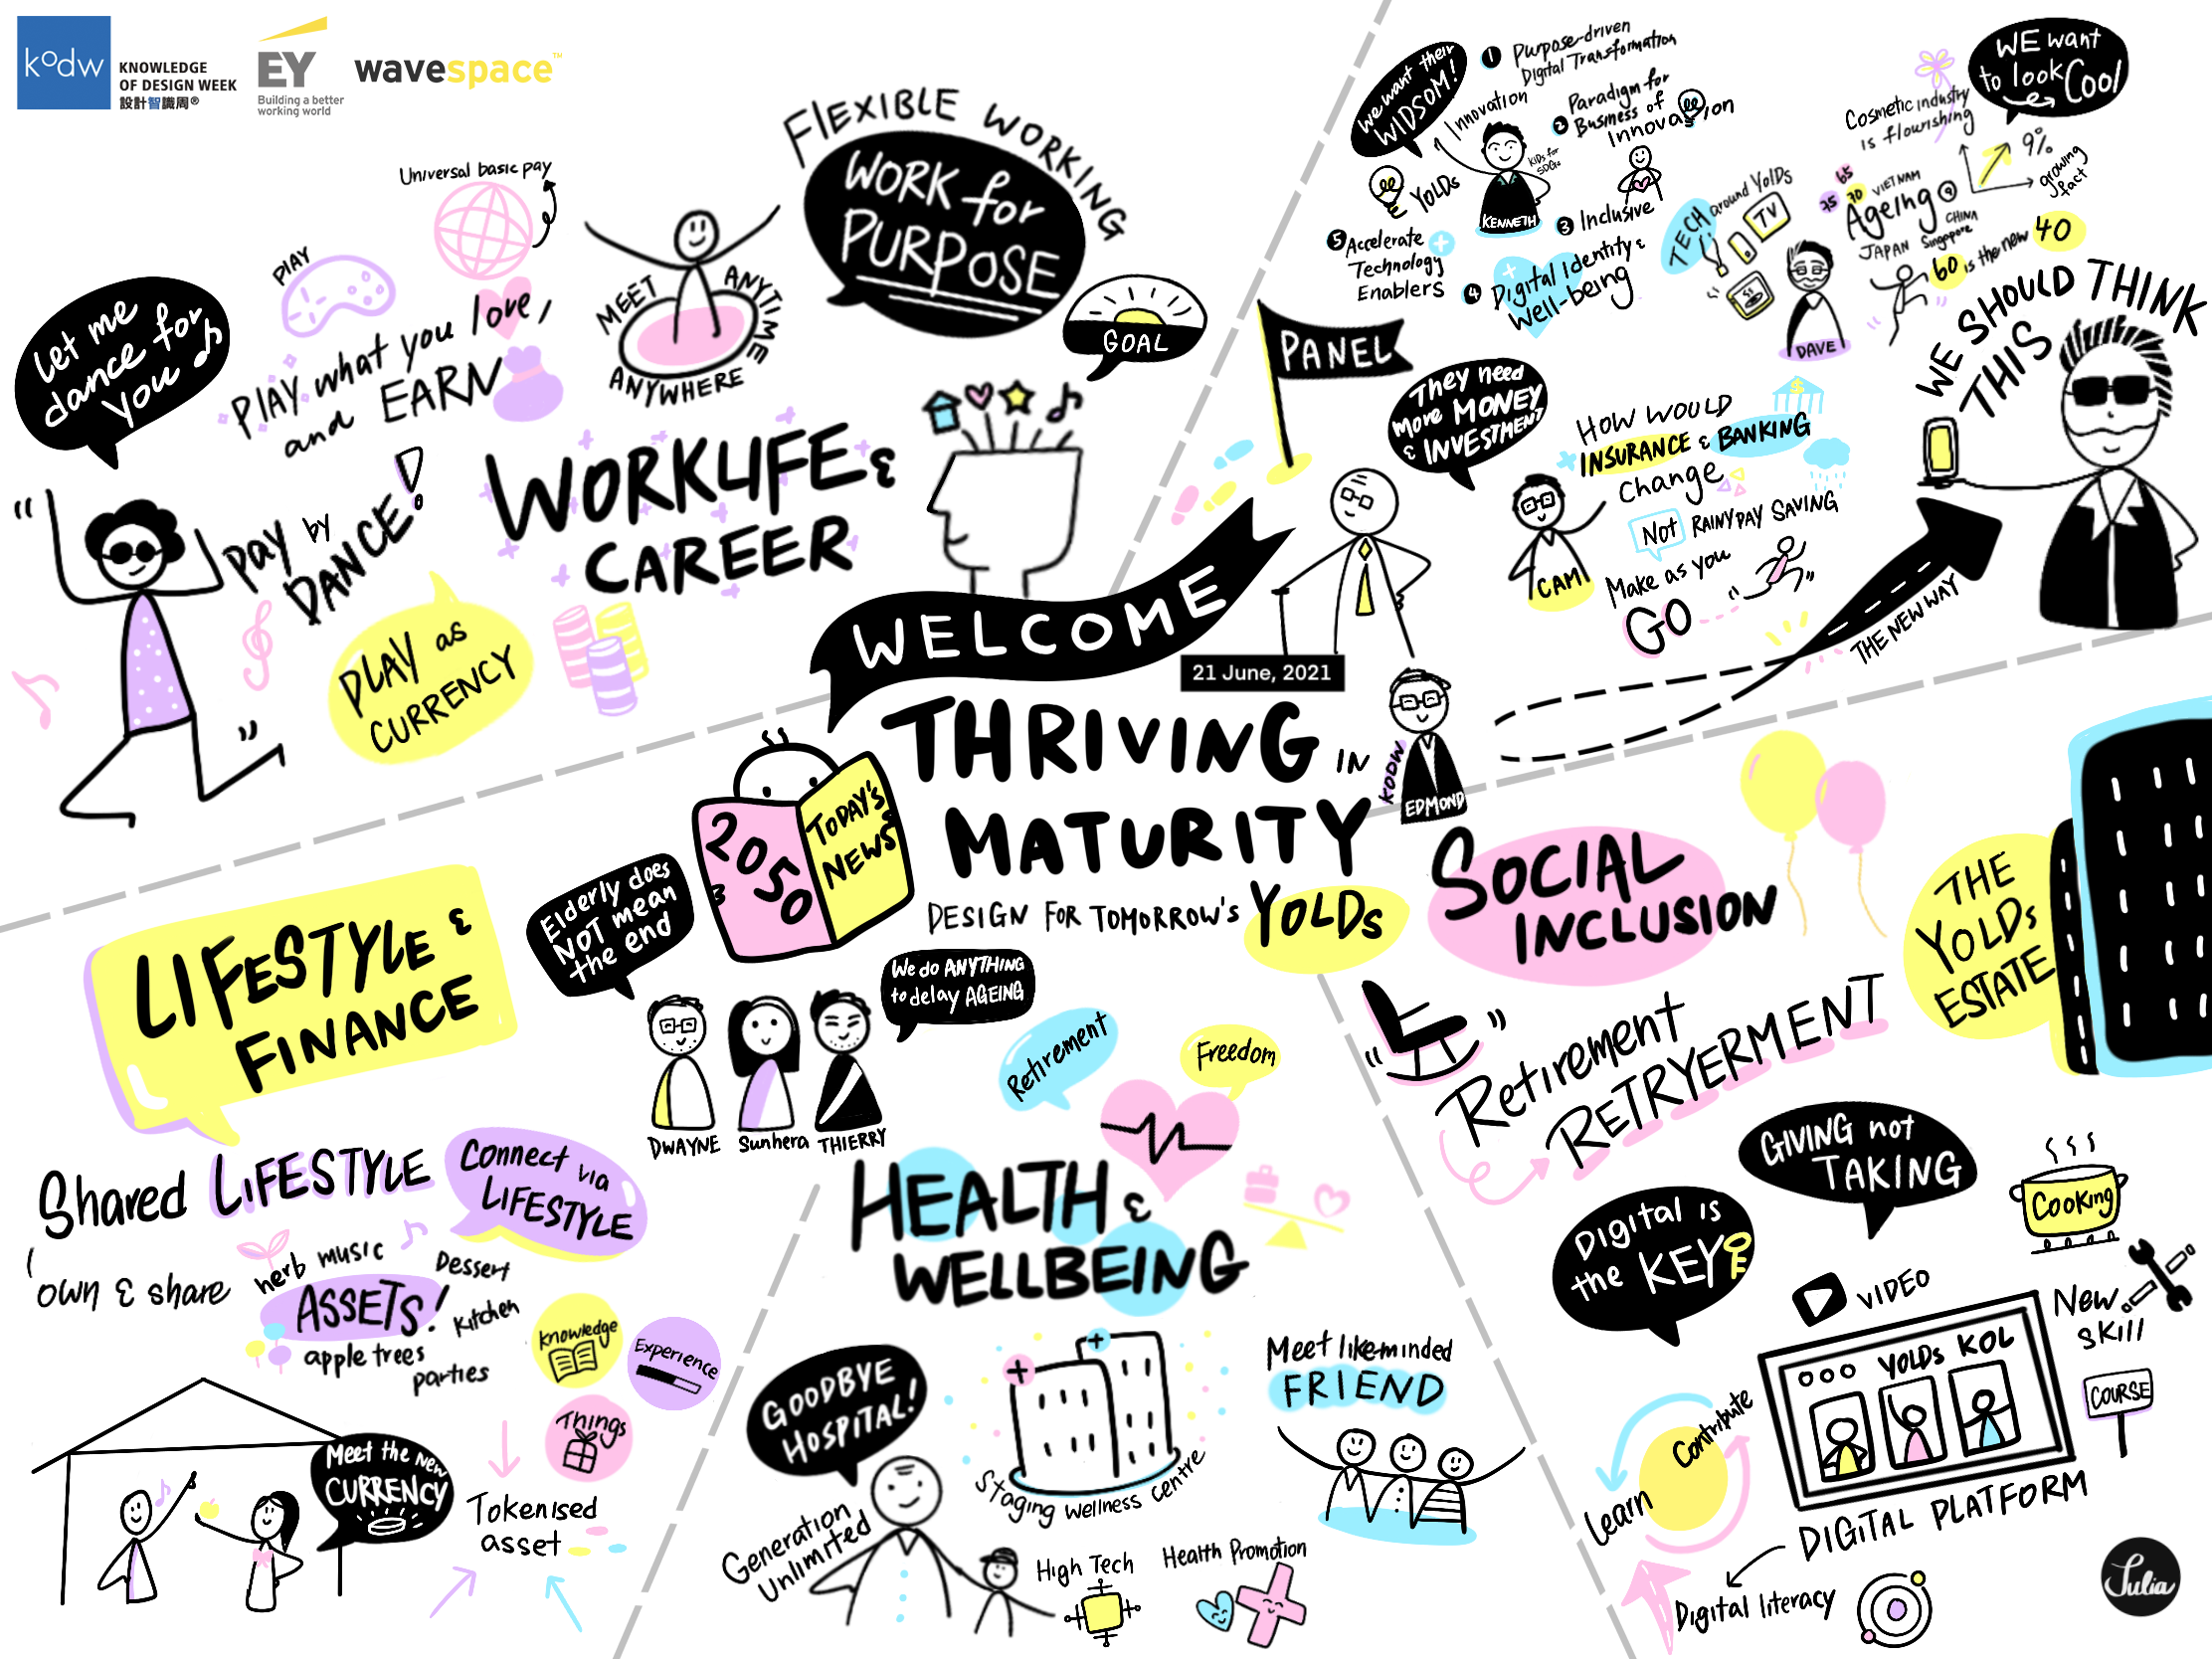 kodw
KNOWLEDGE
OF DESIGN WEEK
設計智識周®
EY
Building a better
working world
wavespace™
FLEXIBLE WORKING
WORK for
PURPOSE
GOAL
Universal basic pay
PLAY
MEET
ANYTIME
ANYWHERE
Let me
dance for
you
PLAY what you love,
and EARN
pay by
DANCE!
PLAY as
CURRENCY
WORKLIFE &
CAREER
WELCOME
21 June, 2021
THRIVING IN
MATURITY
DESIGN FOR TOMORROW'S YOLDs
KODW
EDMOND
2050
TODAY'S
NEWS
PANEL
we want their
WIDSOM!
Innovation
YOLDs
KENNETH
KIDS for
SDGs
1 Purpose-driven
Digital Transformation
2 Paradigm for
Business of
Innovation
3 Inclusive
4 Digital Identity &
Well-being
5 Accelerate
Technology
Enablers
WE want
to look
Cool
Cosmetic industry
is flourishing
9%
growing
fact
TECH around YOLDs
TV
75 70 65
VIETNAM
Ageing @
CHINA
JAPAN Singapore
60 is the new 40
DAVE
They need
more MONEY
& INVESTMENT
CAM
HOW WOULD
INSURANCE & BANKING
change
Not RAINYPAY SAVING
Make as you
GO
WE SHOULD THINK
THIS
THE NEW WAY
LIFESTYLE &
FINANCE
Elderly does
NOT mean
the end
We do ANYTHING
to delay AGEING
DWAYNE
Sunhera
THIERRY
Shared LIFESTYLE
Connect via
LIFESTYLE
own & share
herb
music
Dessert
ASSETS!
kitchen
apple trees
parties
knowledge
Experience
Things
Tokenised
asset
Meet the new
CURRENCY
Retirement
Freedom
HEALTH &
WELLBEING
GOODBYE
HOSPITAL!
Generation
Unlimited
Staging wellness centre
Meet likeminded
FRIEND
High Tech
Health Promotion
SOCIAL
INCLUSION
THE
YOLDs
ESTATE
Retirement
RETRYERMENT
GIVING not
TAKING
Digital is
the KEY
Cooking
New
skill
VIDEO
YOLDs KOL
COURSE
Contribute
Learn
DIGITAL PLATFORM
Digital literacy
Julia